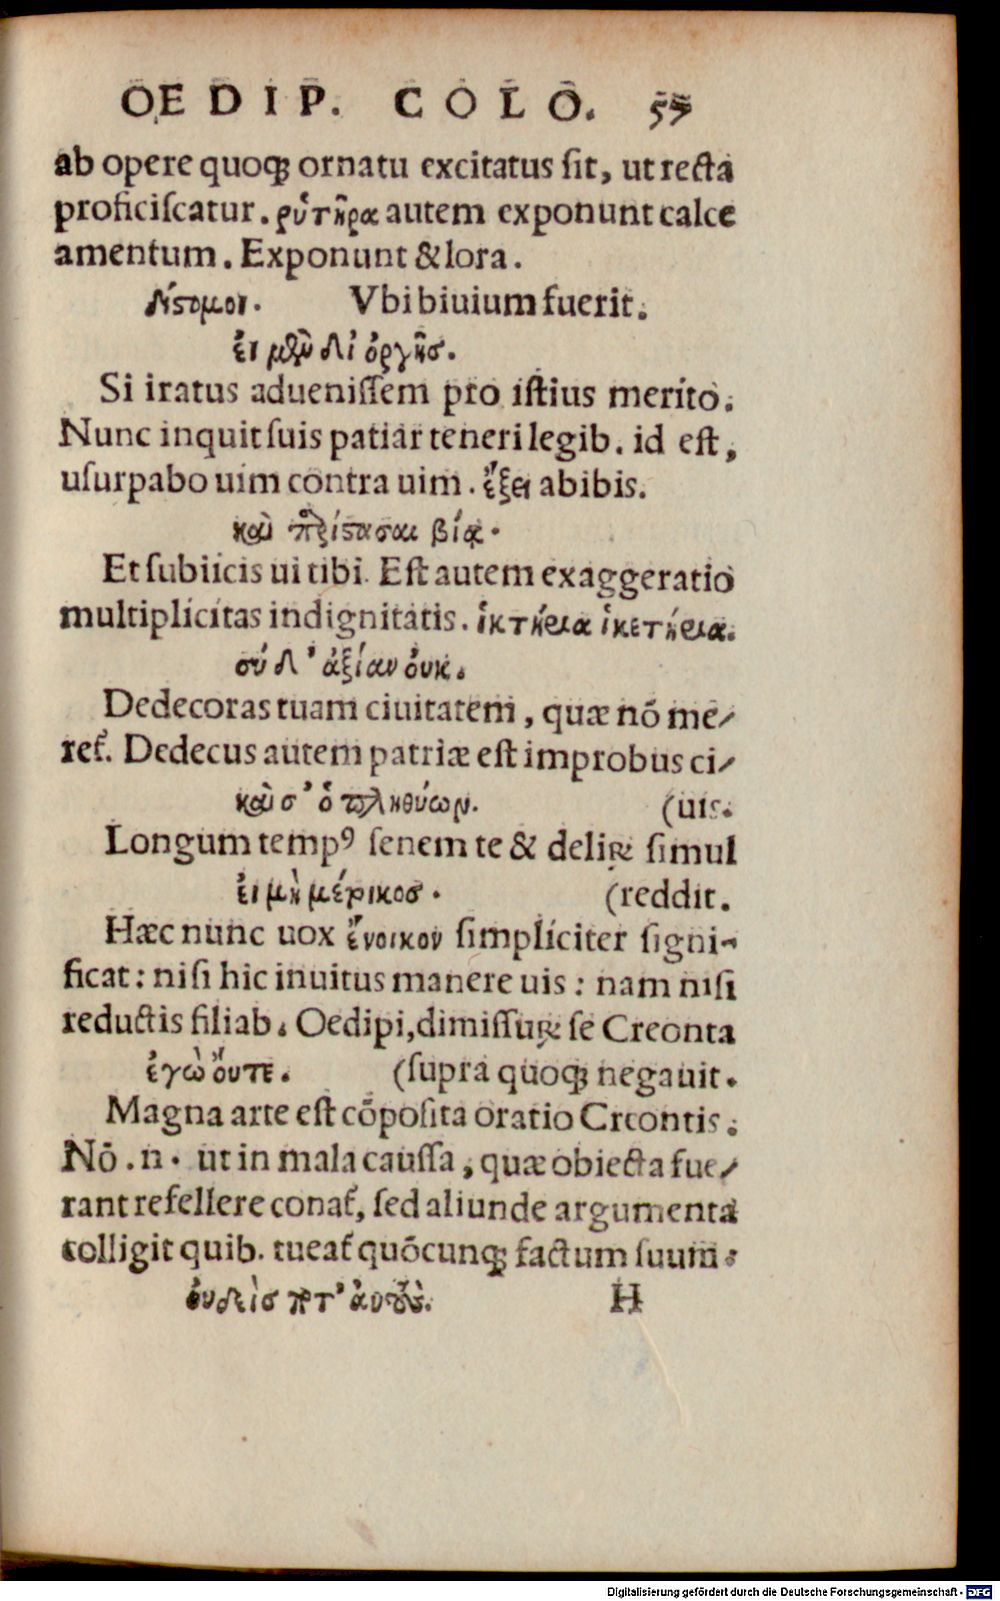 OEDIP. COLŌ. 57
ab opere quoq; ornatu excitatus ſit, ut recta
proficiſcatur. ῥύτῆρα autem exponunt calce
amentum. Exponunt & lora.
δίστομοι. Vbi biuium fuerit.
ἐι μὲν δι' ὀργῆσ.
Si iratus adueniſſem pro iſtius merito.
Nunc inquit ſuis patiar teneri legib. id eſt,
uſurpabo uim contra uim. ἔξει abibis.
καὶ παρίστασαι βίᾳ.
Et ſubiicis ui tibi. Eſt autem exaggeratio
multiplicitas indignitatis. ἱκτήρια ἱκετήρια.
σύ δ' ἀξίαν ὀυκ.
Dedecoras tuam ciuitatem, quæ nō me-
ret̃. Dedecus autem patriæ eſt improbus ci-
καὶ σ' ὁ πληθύων. (uis.
Longum temp⁹ ſenem te & deliꝝ ſimul
ἐι μὴ μέτοικοσ. (reddit.
Hæc nunc uox ἔνοικον ſimpliciter ſigni-
ficat: niſi hic inuitus manere uis: nam niſi
reductis filiab. Oedipi, dimiſſuꝝ ſe Creonta
ἐγὼ ὄυτε. (ſupra quoq; negauit.
Magna arte eſt cōpoſita oratio Creontis.
Nō. n. ut in mala cauſſa, quæ obiecta fue-
rant refellere conat̃, ſed aliunde argumenta
colligit quib. tueat̃ quōcunq; factum ſuum.
ὀυδεὶσ ποτ' ἀυτοὺς. H
Digitalisierung gefördert durch die Deutsche Forschungsgemeinschaft - DFG